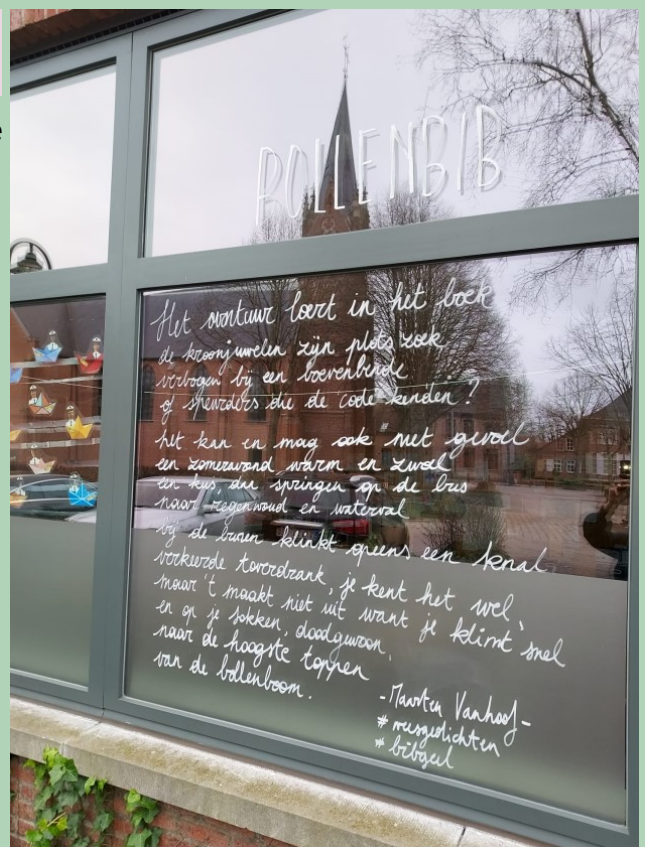 BOLLENBIB
Het avontuur loert in het boek
de kroonjuwelen zijn plots zoek
verborgen bij een boevenbende
of speurders die de code kenden?
het kan en mag ook met gevoel
een zomeravond warm en zwoel
een kus dan springen op de bus
naar regenwoud en waterval
bij de buren klinkt opeens een knal
verkeerde toverdrank, je kent het wel,
maar 't maakt niet uit want je klimt snel
en op je sokken, doodgewoon,
naar de hoogste toppen
van de bollenboom.
-Maarten Vanhoof-
#reisgedichten
#bibgeel